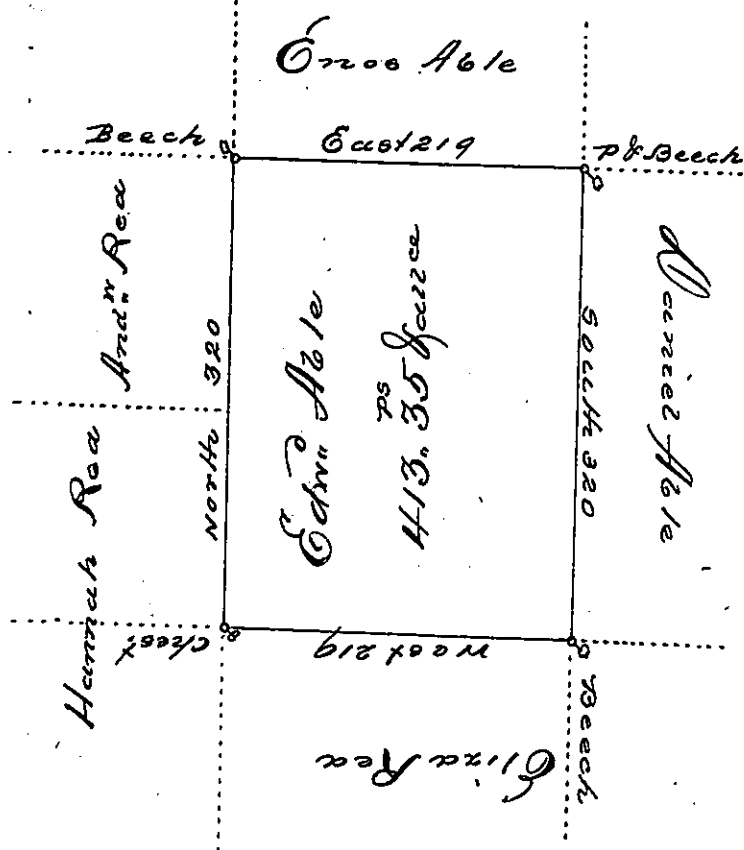 Enos Able
Beech
East 219
P & Beech
And.w Rea
North 320
Edw.d Able
413. 35 ps & allce
South 320
Daniel Able
Hannah Rea
Chest
West 219
Beech
Eliza Rea